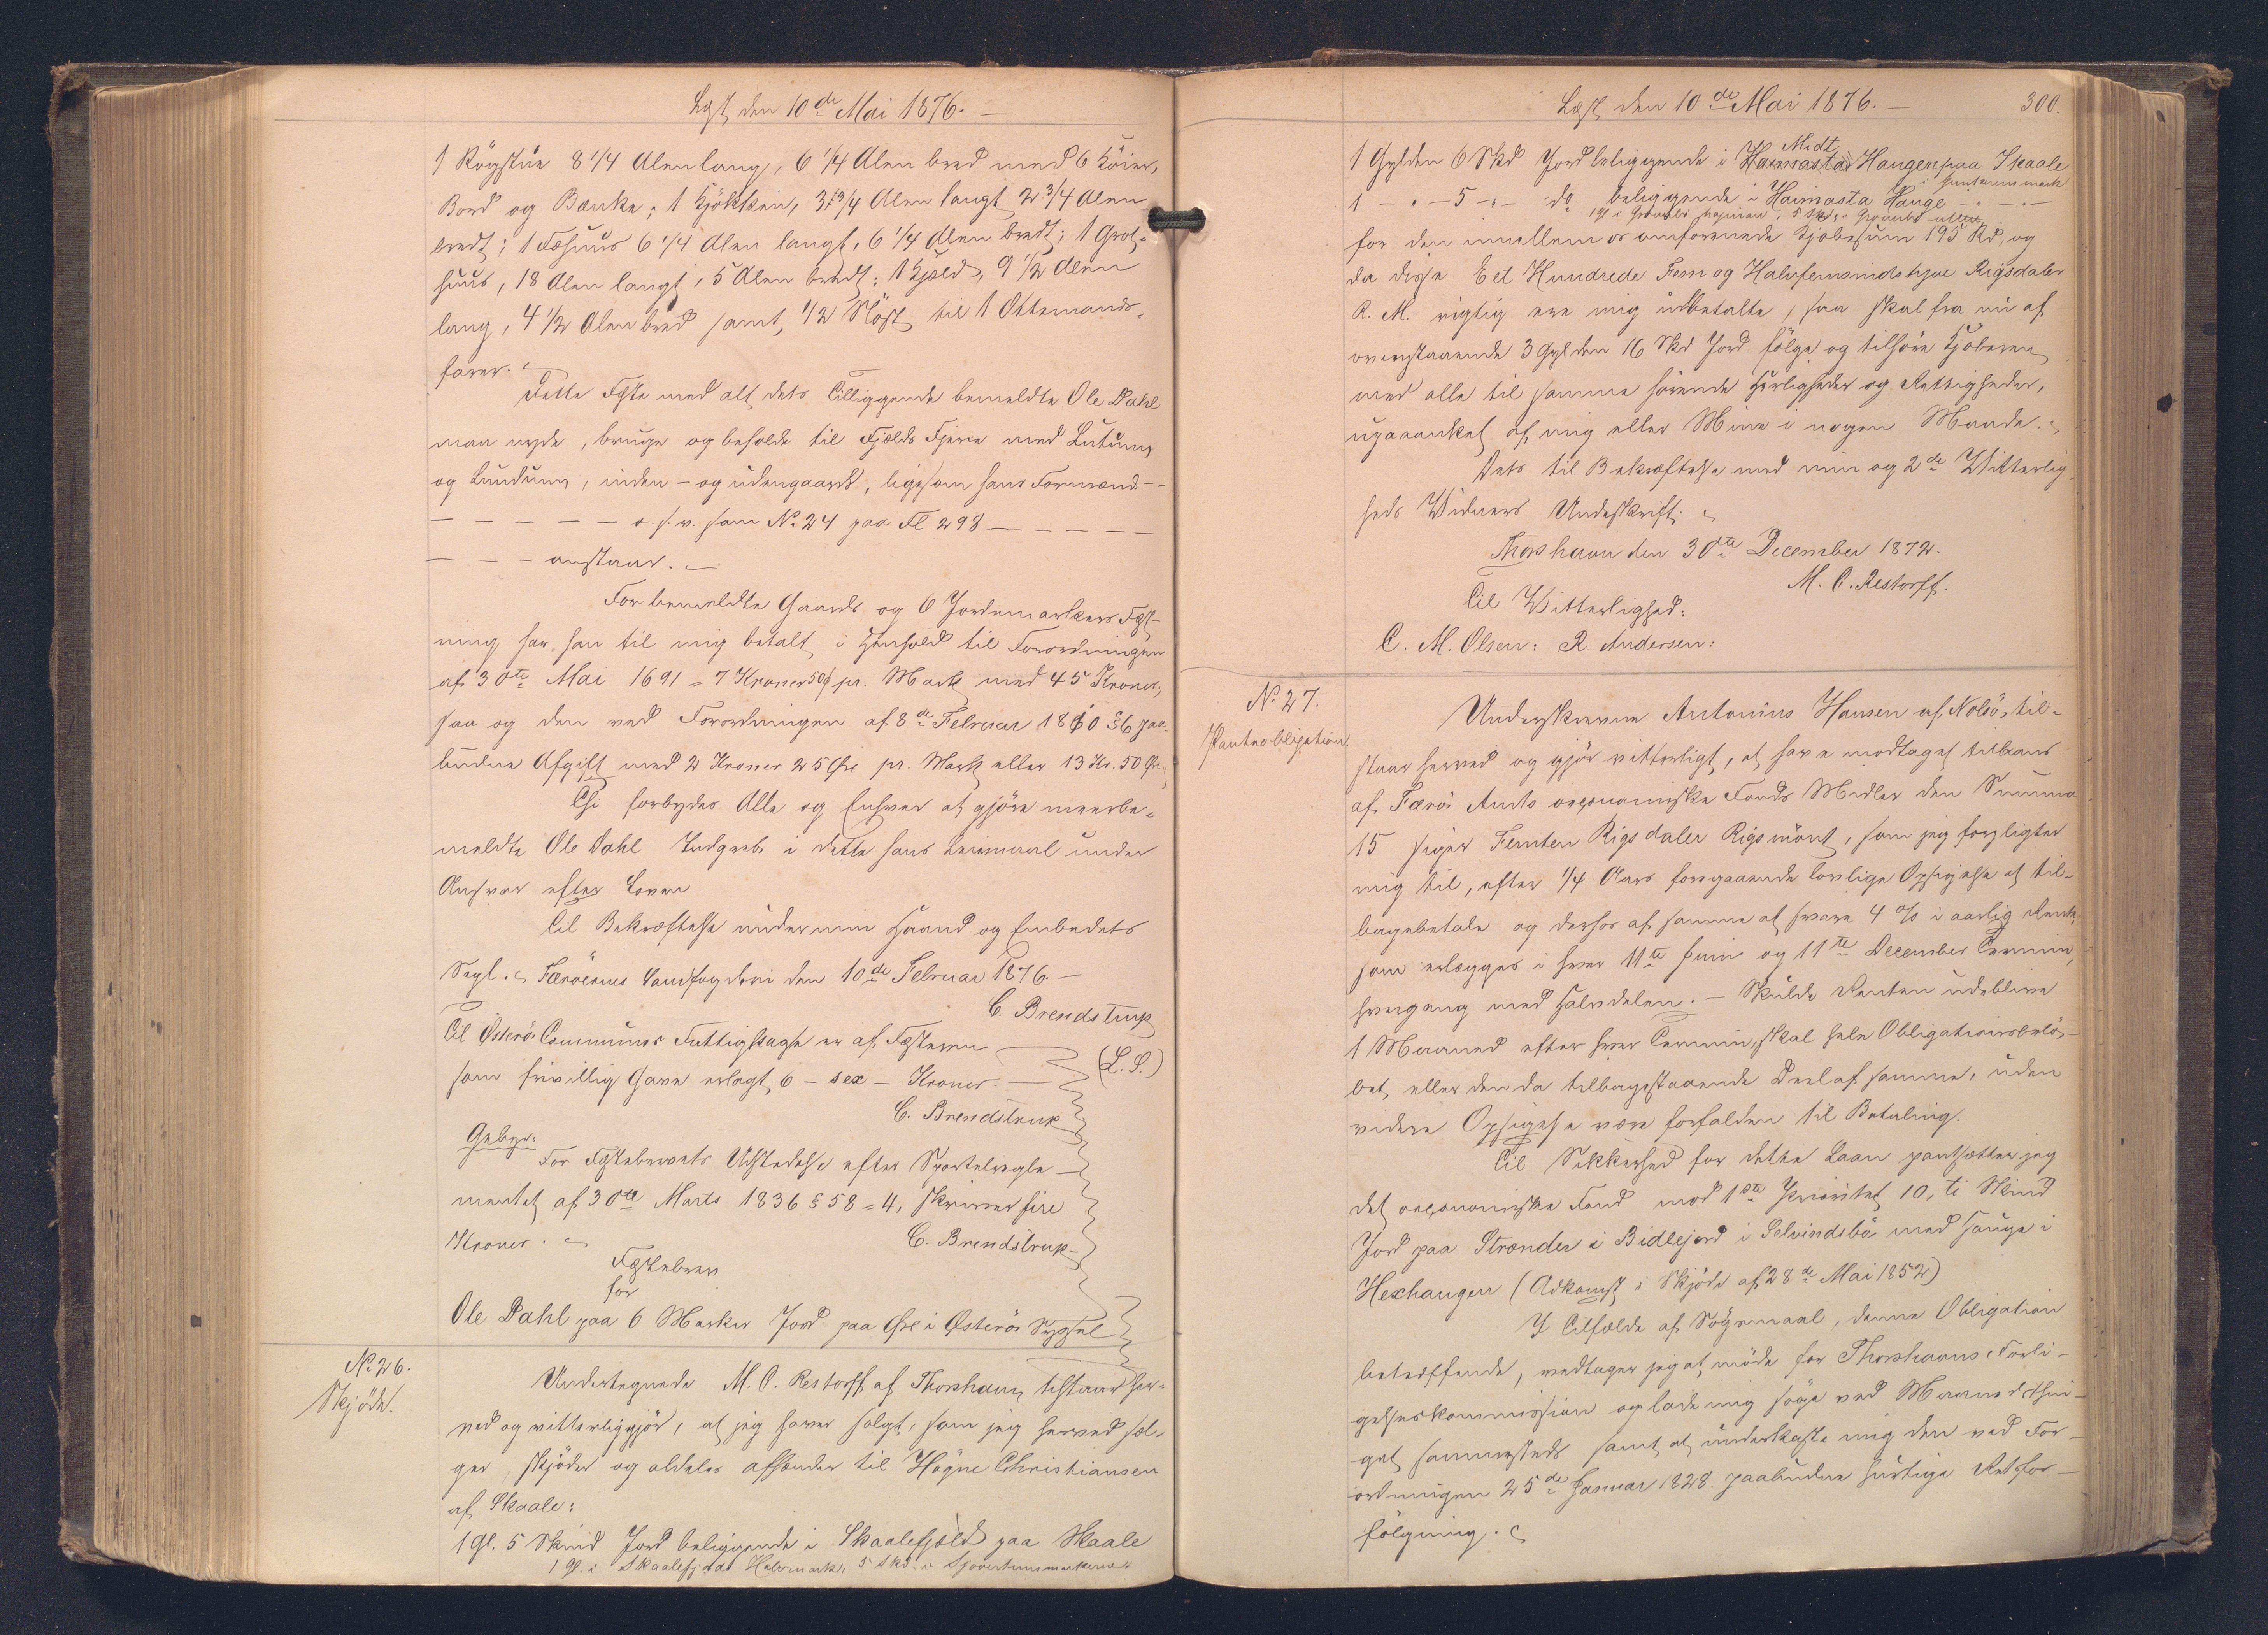 Læst den 10de Mai 1876. —
1 Rögstue 8 1/4 Alen lang, 6 1/4 Alen bred med 6 Köier,
Bord og Bænke; 1 Kjökken, 3 3/4 Alen langt 2 3/4 Alen
bredt; 1 Fæhuus 6 1/4 Alen langt, 6 1/4 Alen bredt; 1 Grot-
huus, 18 Alen langt, 5 Alen bredt; 1 Kjæld, 9 1/2 Alen
lang, 4 1/2 Alen bred samt 1/2 Nöst til 1 Ottemands-
farer.
Dette Fæste med alt dets Tilliggende bemeldte Ole Dahl
maa nyde, bruge og beholde til Fjælds Fjære med Lutum
og Lundum, inden- og udengaards, ligesom hans Formænd --
— — — — — o. s. v. som No. 24 paa Fl 298 — — — — —
— — — anstaar.
For bemeldte Gaards og 6 Jordemarkers Fæst-
ning har han til mig betalt i Henhold til Forordningen
af 30te Mai 1691 = 7 Kroner 50 Ø pr. Mark med 45 Kroner,
saa og den ved Forordningen af 8de Februar 1810 § 6 paa-
budne Afgift med 2 Kroner 25 Øre pr. Mark eller 13 Kr. 50 Øre,
Thi forbydes Alle og Enhver at gjöre meerbe-
meldte Ole Dahl Indgreb i dette hans Leiemaal under
Ansvar efter Loven
Til Bekræftelse under min Haand og Embedets
Segl. Færöernes Landfogderi den 10de Februar 1876. —
C. Brendstrup
(L. S.)
Til Österö Communes Fattigkasse er af Fæsteren
som frivillig Gave erlagt 6 - sex - Kroner. —
C. Brendstrup
Gebyr:
For Fæstebrevets Udstedelse efter Sportelregle-
mentet af 30te Marts 1836 § 58 = 4, skriver fire
Kroner.
C. Brendstrup
Fæstebrev
for
Ole Dahl paa 6 Marker Jord paa Øre i Østerö Syssel
No. 26.
Skjöde.
Undertegnede M. C. Restorff af Thorshavn tilstaar her-
ved og vitterliggjör, at jeg haver solgt, som jeg herved sæl-
ger, skjöder og aldeles afhænder til Högne Christiansen
af Skaale:
1 Gl. 5 Skind Jord beliggende i Skaalefjeld paa Skaale
1 Gl. i Skaalefjords Halvmark, 5 Skd. i
Læst den 10de Mai 1876. —
300.
1 Gylden 6 Skd Jord beliggende i Midt Haugen paa Skaale
1 — " — 5 — " — do beliggende i Haimasta Hauge — " — " —
for den imellem os omforenede Kjöbesum 195 Rd, og
da disse Eet Hundrede Fem og Halvfemsindstyve Rigsdaler
R. M. rigtig ere mig udbetalte, saa skal fra nu af
ovenstaaende 3 Gylden 16 Skd Jord fölge og tilhöre Kjöberen
med alle til samme hörende Herligheder og Rettigheder,
upaaanket af mig eller Mine i nogen Maade.
Dets til Bekræftelse med min og 2de Vitterlig-
heds Vidners Underskrift.
Thorshavn den 30te December 1872.
M. C. Restorff.
Til Vitterlighed:
C. M. Olsen: R. Andersen:
No. 27.
Panteobligation.
Underskrevne Antonius Hansen af Nolsö, til-
staar herved og gjör vitterligt, at have modtaget tillaans
af Færö Amts oeconomiske Fonds Midler den Summa
15 siger Femten Rigsdaler Rigsmönt, som jeg forpligter
mig til, efter 1/4 Aars forgaaende lovlige Opsigelse at til-
bagebetale og derhos af samme at svare 4 % i aarlig Rente,
som erlægges i hver 11te Juni og 11te December Termin,
hvergang med Halvdelen. — Skulde Renten udeblive
1 Maaned efter hver Termin, skal hele Obligationsbelö-
bet, eller den da tilbagestaaende Deel af samme, uden
videre Opsigelse være forfalden til Betaling.
Til Sikkerhed for dette Laan pantsætter jeg
det oeconomiske Fond med 1ste Prioritet 10, ti Skind
Jord paa Strænder i Bidlejord i Selvindsbö med Hauge i
Hexhaugen (Adkomst i Skjöde af 28de Mai 1852)
I Tilfælde af Sögsmaal, denne Obligation
betreffende, vedtager jeg at möde for Thorshavns Forli-
gelseskommission og lade mig söge ved Maanedsthin-
get sammesteds samt at underkaste mig den ved For-
ordningen 25de Januar 1828 paabudne hurtige Retsfor-
fölgning.